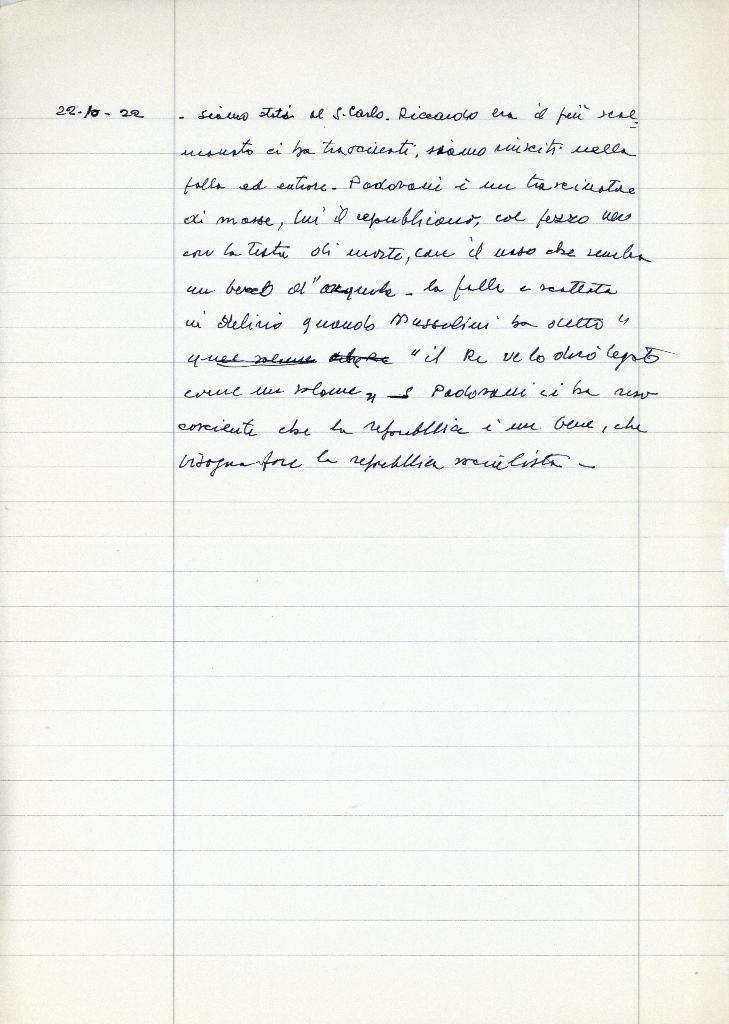 22-10-22 - siamo stati al S. Carlo. Riccardo era il più scal=
manato ci ha trascinati, siamo riusciti nella
folla ed entrare - Padovani è un trascinatore
di masse, lui il repubblicano, col fezzo nero
con la testa di morte, con il naso che sembra
un becco d'aquila - la folla è scattata
in delirio quando Mussolini ha detto "
"il Re ve lo darò legato
come un salame" - Padovani ci ha reso
cosciente che la repubblica è un bene, che
bisogna fare la repubblica socialista -